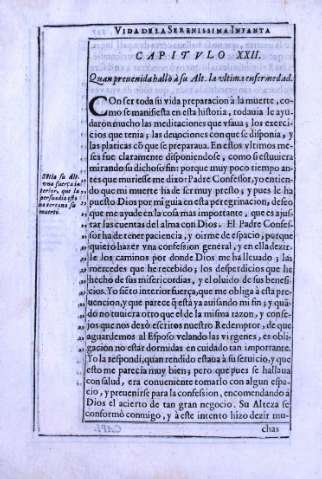 VIDA DE LA SERENISSIMA INFANTA
CAPITVLO XXII.
Quan preuenida hallò à su Alt. la vltima enfermedad.
CON ser toda su vida preparacion à la muerte, co-
mo se manifiesta en esta historia, todauia le ayu-
daron mucho las meditaciones que vsaua; los exerci-
cios que tenia; las deuociones con que se disponia, y
las platicas cõ que se preparaua. En estos vltimos me-
ses fue claramente disponiendose, como si estuuiera
mirando su dichoso fin: porque muy poco tiempo an-
tes que muriesse me dixo: Padre Confessor, yo entien-
do que mi muerte ha de ser muy presto; y pues le ha
puesto Dios por mi guia en esta peregrinacion, deseo
que me ayude en la cosa mas importante, que es ajus-
tar las cuentas del alma con Dios. El Padre Confes-
sor ha de tener paciencia, y oirme de espacio, porque
quiero hazer vna confession general, y en ella dezir-
le los caminos por donde Dios me ha lleuado; las
mercedes que he recebido; los desperdicios que he
hecho de sus misericordias, y el oluido de sus benefi-
cios. Yo siẽto interior fuerça, que me obliga à esta pre-
uencion, y que parece q̃ està ya auisando mi fin; y quã-
do no tuuiera otro que el de la misma razon, y conse-
jos que nos dexò escritos nuestro Redemptor, de que
aguardemos al Esposo velando las virgenes, es obli-
gacion no estâ dormidas en cuidado tan importante.
Yo la respondi, quan rendido estaua à su seruicio, y que
esto me parecia muy bien; pero que pues se hallaua
con salud, era conueniente tomarlo con algun espa-
cio, y preuenirse para la confession, encomendando à
Dios el acierto de tan gran negocio. Su Alteza se
conformò conmigo, y à este intento hizo dezir mu-
chas
Sẽtia su Alt.
vna fuerça in-
terior, que la
persuadia esta-
ua cercana su
muerte.